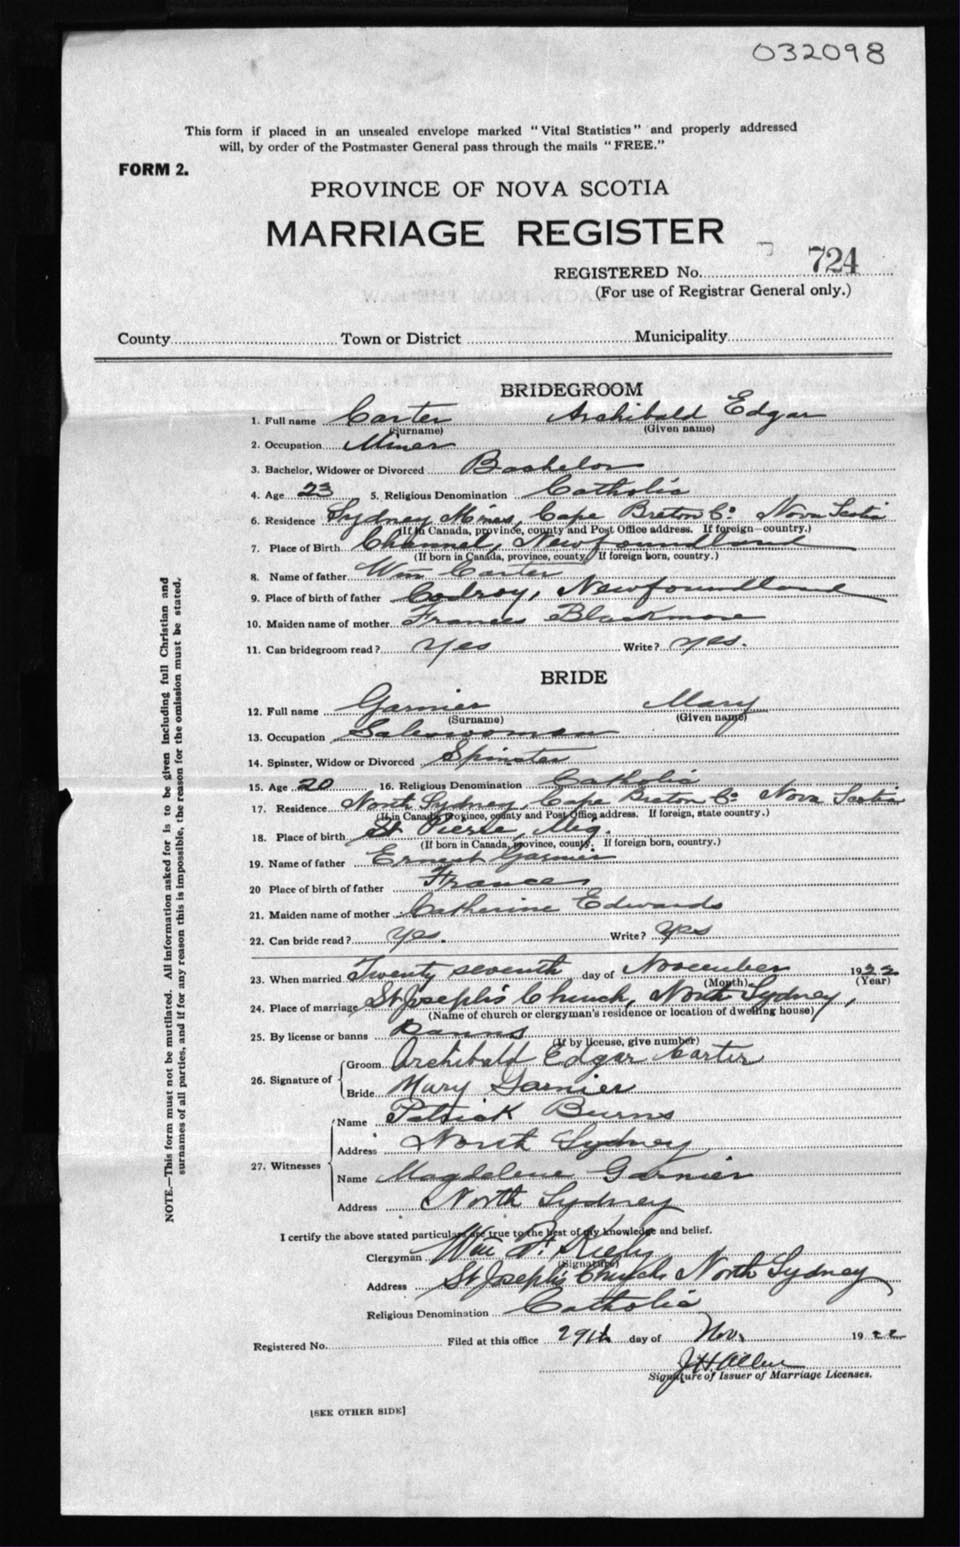 032098
This form if placed in an unsealed envelope marked "Vital Statistics" and properly addressed
will, by order of the Postmaster General pass through the mails "FREE."
FORM 2.
PROVINCE OF NOVA SCOTIA
MARRIAGE REGISTER
REGISTERED No. 724
(For use of Registrar General only.)
County Town or District Municipality
BRIDEGROOM
1. Full name Carter Archibald Edgar
(Surname) (Given name)
2. Occupation Miner
3. Bachelor, Widower or Divorced Bachelor
4. Age 23 5. Religious Denomination Catholic
6. Residence Sydney Mines, Cape Breton Co. Nova Scotia
(If in Canada, province, county and Post Office address. If foreign country.)
7. Place of Birth Channel, Newfoundland
(If born in Canada, province, county. If foreign born, country.)
8. Name of father Wm Carter
9. Place of birth of father Codroy, Newfoundland
10. Maiden name of mother Frances Blackmore
11. Can bridegroom read? Yes Write? Yes.
BRIDE
12. Full name Garnier Mary
(Surname) (Given name)
13. Occupation Saleswoman
14. Spinster, Widow or Divorced Spinster
15. Age 20 16. Religious Denomination Catholic
17. Residence North Sydney, Cape Breton Co. Nova Scotia
(If in Canada, province, county and Post Office address. If foreign, state country.)
18. Place of birth St Pierre, Miq.
(If born in Canada, province, county. If foreign born, country.)
19. Name of father Ernest Garnier
20 Place of birth of father Frances
21. Maiden name of mother Catherine Edwards
22. Can bride read? Yes. Write? Yes
23. When married Twenty seventh day of November 1922
(Month) (Year)
24. Place of marriage St Joseph's Church, North Sydney,
(Name of church or clergyman's residence or location of dwelling house)
25. By license or banns Banns
(If by license, give number)
26. Signature of Groom Archibald Edgar Carter
Bride Mary Garnier
27. Witnesses Name Patrick Burns
Address North Sydney
Name Magdelene Garnier
Address North Sydney
I certify the above stated particulars are true to the best of my knowledge and belief.
Clergyman Wm
(Signature)
Address St Joseph's Church North Sydney
Religious Denomination Catholic
Registered No. Filed at this office 29th day of Nov. 1922
J H Allen
Signature of Issuer of Marriage Licenses.
[SEE OTHER SIDE]
NOTE.—This form must not be mutilated. All information asked for is to be given including full Christian and
surnames of all parties, and if for any reason this is impossible, the reason for the omission must be stated.